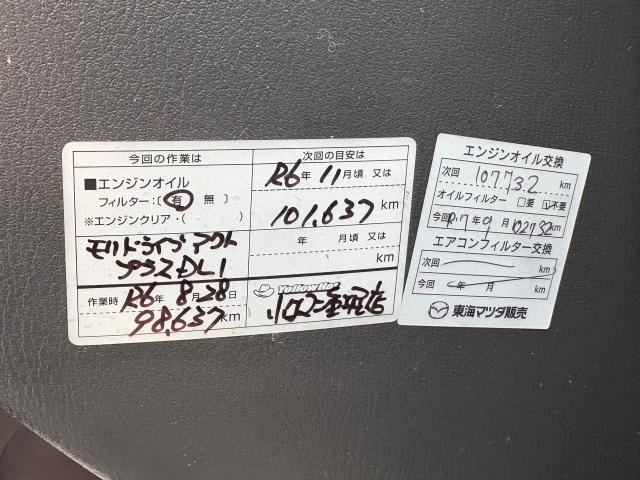 今回の作業は
■エンジンオイル
フィルター:〔有 無 〕
※エンジンクリア・( )
モリドライブ アクト
プラス DL1
作業時 R6年 8月28日
98,637km
次回の目安は
R6年 11月頃 又は
101,637km
年 月頃 又は
km
Yellow Hat
エンジンオイル交換
次回 107732 km
オイルフィルター □要 ☑不要
今回 R7年9月 102732km
エアコンフィルター交換
次回 km
今回 年 月 km
東海マツダ販売